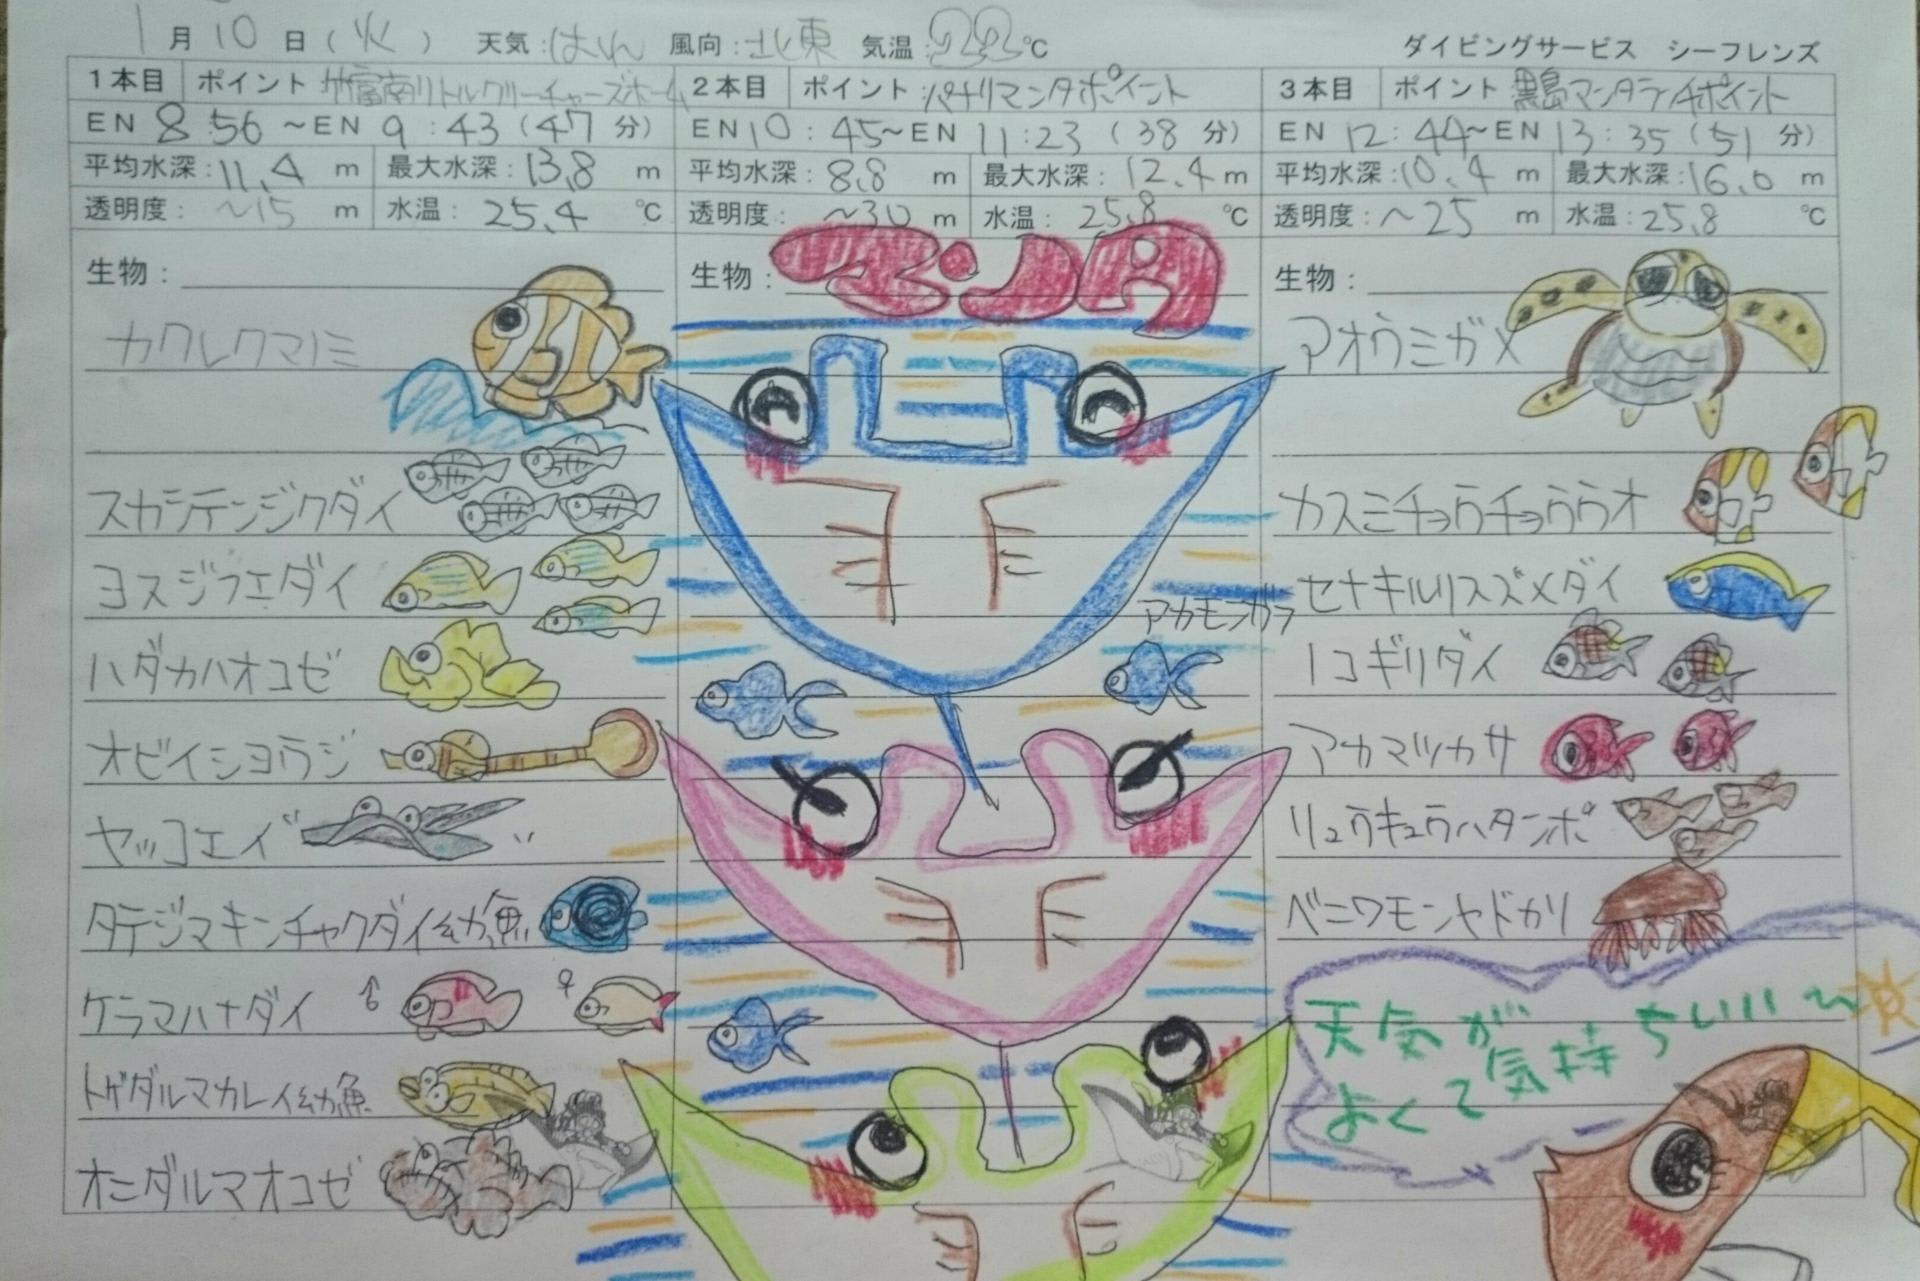 1月10日(火) 天気:はれ 風向:北東 気温:22℃ ダイビングサービス シーフレンズ
1本目 ポイント 竹富南リトルクリーチャーズホーム
EN 8:56 ~EN 9:43(47分)
平均水深:11.4 m 最大水深:13.8 m
透明度:~15 m 水温:25.4 ℃
生物:
カクレクマノミ
スカシテンジクダイ
ヨスジフエダイ
ハダカハオコゼ
オビイシヨウジ
ヤッコエイ
タテジマキンチャクダイ幼魚
ケラマハナダイ ♂ ♀
トゲダルマカレイ幼魚
オニダルマオコゼ
2本目 ポイント パナリマンタポイント
EN 10:45~EN 11:23(38分)
平均水深:8.8 m 最大水深:12.4 m
透明度:~30 m 水温:25.8 ℃
生物:マンタ
アカモンガラ
3本目 ポイント 黒島マンタランチポイント
EN 12:44~EN 13:35(51分)
平均水深:10.4 m 最大水深:16.0 m
透明度:~25 m 水温:25.8 ℃
生物:
アオウミガメ
カスミチョウチョウウオ
セナキルリスズメダイ
ノコギリダイ
アカマツカサ
リュウキュウハタンポ
ベニワモンヤドカリ
天気が
よくて気持ちいいい~